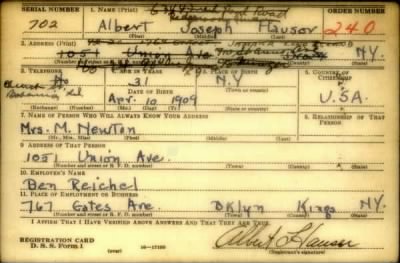 SERIAL NUMBER 1. NAME (Print) Road ORDER NUMBER
702 Albert Joseph Hauser 240
(First) (Middle) (Last)
2. ADDRESS (Print)
1051 Union Ave N.Y.
3. TELEPHONE 4. AGE IN YEARS 5. PLACE OF BIRTH 6. COUNTRY OF CITIZENSHIP
No 31 N.Y.
DATE OF BIRTH (Town or county)
Apr. 10 1909 U.S.A.
(Exchange) (Number) (Mo.) (Day) (Yr.) (State or country)
7. NAME OF PERSON WHO WILL ALWAYS KNOW YOUR ADDRESS 8. RELATIONSHIP OF THAT PERSON
Mrs. M. Newton
(Mr., Mrs., Miss) (First) (Middle) (Last)
9. ADDRESS OF THAT PERSON
1051 Union Ave.
(Number and street or R. F. D. number) (Town) (County) (State)
10. EMPLOYER'S NAME
Ben Reichel
11. PLACE OF EMPLOYMENT OR BUSINESS
767 Gates Ave Bklyn Kings N.Y.
(Number and street or R. F. D. number) (Town) (County) (State)
I AFFIRM THAT I HAVE VERIFIED ABOVE ANSWERS AND THAT THEY ARE TRUE.
REGISTRATION CARD
D. S. S. Form 1 Albert J. Hauser
(Registrant's signature)